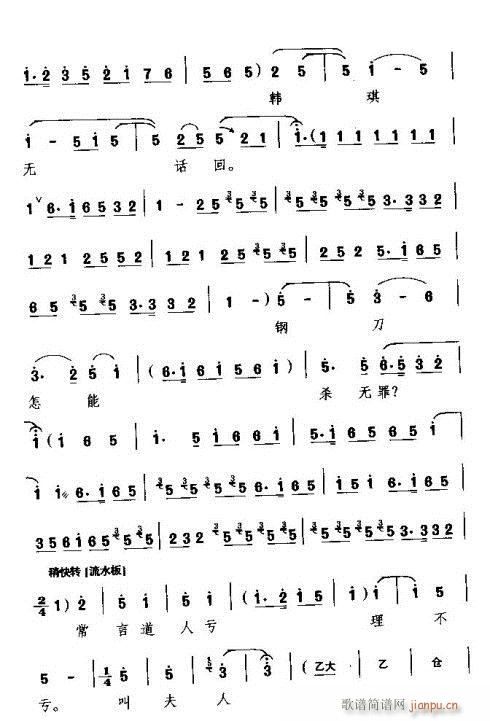 i·2 3 5 2 i 7 6 | 5 6 5 ) 2 5 | 5 i - 5
韩 琪
i - 5 i 5 | 5 2 5 5 2 1 | i·( i i i i i i i
无 话 回。
1 ᵛ 6·i 6 5 3 2 | 1 - 2 5 5 5 | 5 5 5 5 5 3·3 3 2
1 2 1 2 5 5 2 | 1 2 1 2 5 5 5 5 | 2 5 2 5·i 6 5
6 5 5 5 3·3 3 2 | 1 - ) 5 - | 5 3 - 6
钢 刀
3· 2 5 i | ( 6·i 6 i 5 6 i ) | 5· 5 6·5 3 2
怎 能 杀 无 罪？
i ( i 6 5 | i· 5 i 6 6 i | 5· 5 6 5 6 5 i
i i 6·i 6 5 | 3 5 5 5 5 6·i 6 5 | 1 2 i 2 6·i 6 5
3 5 6 5 i 6 5 5 5 | 2 3 2 5 5 5 | 2 5 5 5 5 3·3 3 2
稍快转［流水板］
2/4 1 ) 2 | 5 i | 5 2 i | ( i·2 i 5 ) | i i | i 5
常 言 道 人 亏 理 不
5 - | 1/4 5 | 5 | 5 3 | ( 3 ) | ( 乙大 | 乙 | 仓
亏。 叫 夫 人
歌谱简谱网 jianpu.cn